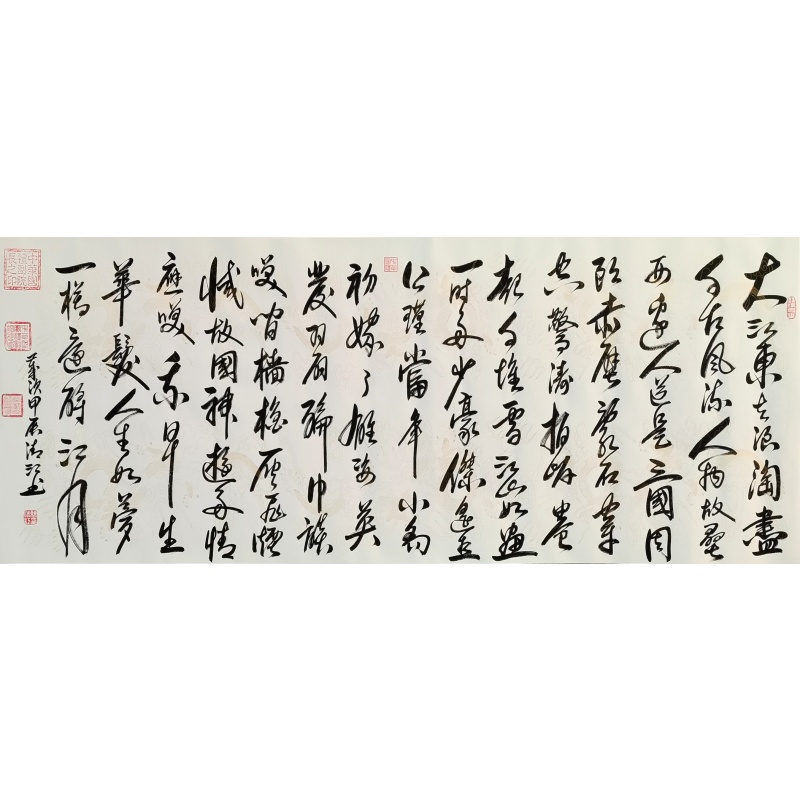 大江東去浪淘盡
千古風流人物故壘
西邊人道是三國周
郎赤壁亂石穿
空驚濤拍岸卷
起千堆雪江山如畫
一時多少豪傑遙想
公瑾當年小喬
初嫁了雄姿英
發羽扇綸巾談
笑間檣櫓灰飛煙
滅故國神遊多情
應笑我早生
華髮人生如夢
一樽還酹江月
歲次甲辰清江书